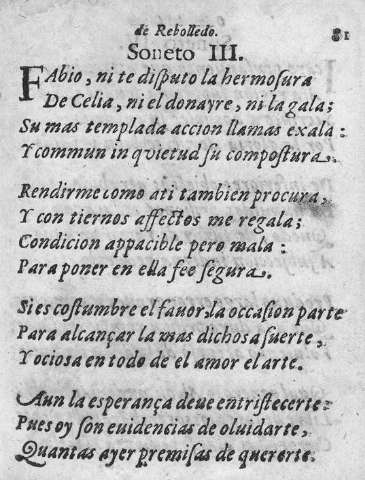 de Rebolledo. 81
Soneto III.
FAbio, ni te diſputo la hermoſura
De Celia, ni el donayre, ni la gala;
Su mas templada accion llamas exala:
Y commun in qvietud ſu compoſtura.
Rendirme como ati tambien procura,
Y con tiernos affectos me regala;
Condicion appacible pero mala:
Para poner en ella fee ſegura.
Sies coſtumbre el fauor, la occaſion parte
Para alcançar la mas dichoſa ſuerte,
Y ocioſa en todo de el amor el arte.
Aun la eſperança deue entriſtecerte:
Pues oy ſon euidencias de oluidarte,
Quantas ayer premiſas de quererte.